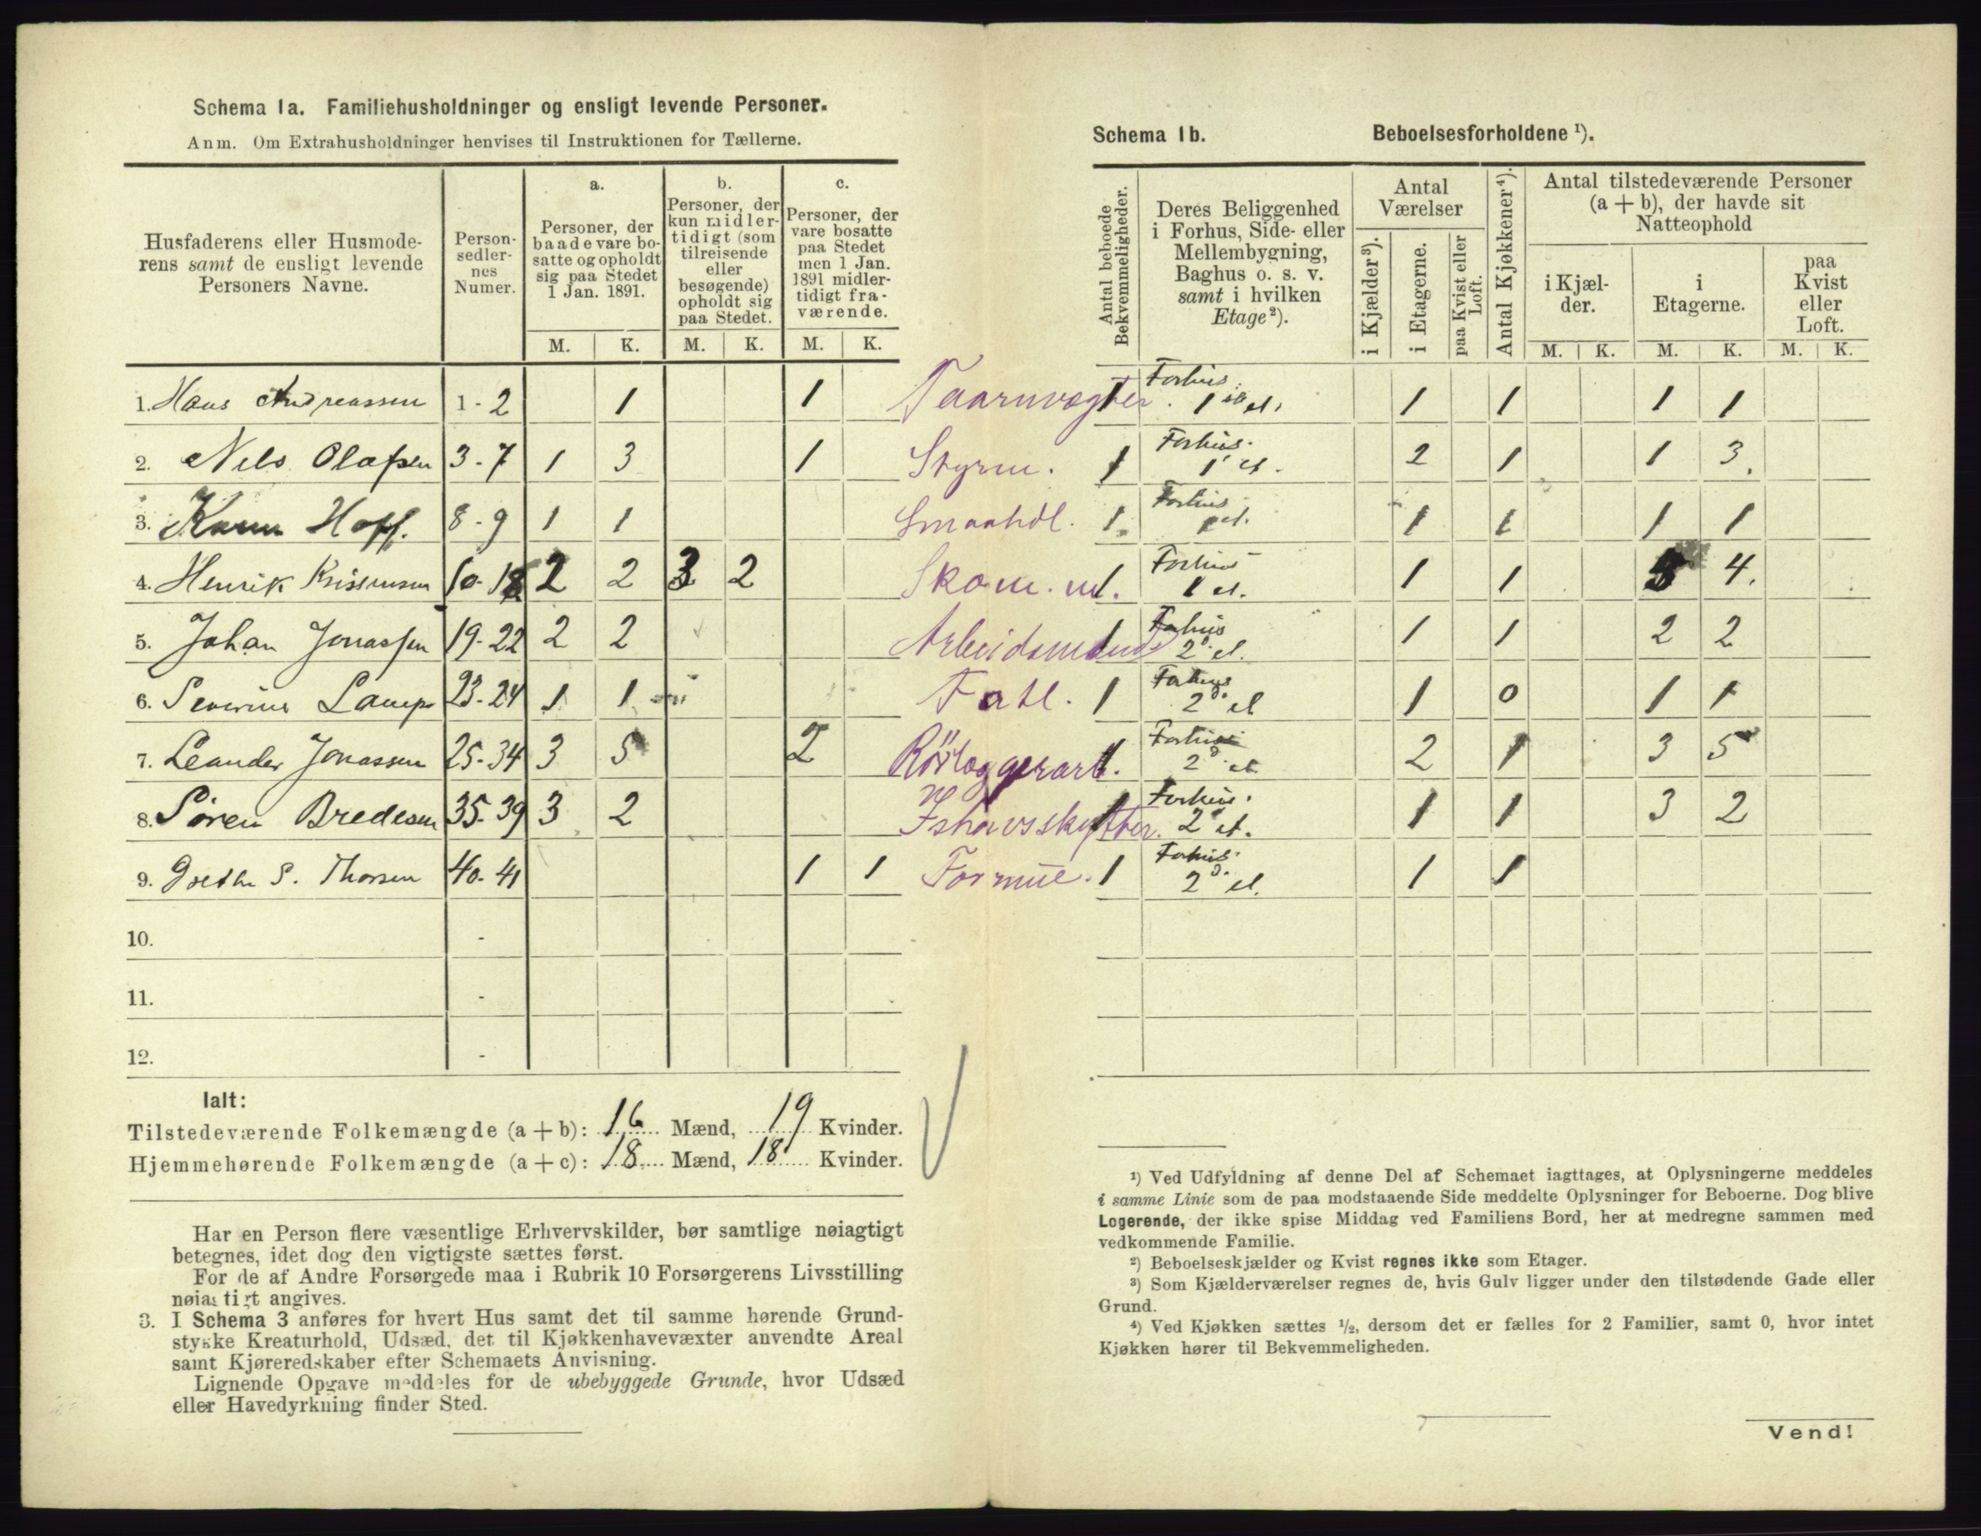 Schema 1a. Familiehusholdninger og ensligt levende Personer.
Anm. Om Extrahusholdninger henvises til Instruktionen for Tællerne.
Husfaderens eller Husmoderens samt de ensligt levende Personers Navne.
Personsedlernes Numer.
a.
Personer, der baade vare bosatte og opholdt sig paa Stedet 1 Jan. 1891.
b.
Personer, der kun midlertidigt (som tilreisende eller besøgende) opholdt sig paa Stedet.
c.
Personer, der vare bosatte paa Stedet men 1 Jan. 1891 midlertidigt fraværende.
M. K. M. K. M. K.
1. Hans Andreassen 1-2 1 1 Taarnvogter
2. Nils Olafsen 3-7 1 3 1 Styrm.
3. Karen Hoff. 8-9 1 1 Smaahdl.
4. Henrik Kristensen 10-18 2 2 3 2 Skom. m.
5. Johan Jonassen 19-22 2 2 Arbeidsmand
6. Severine Lamp 23-24 1 1 Fatl.
7. Leander Jonassen 25-34 3 5 2 Rörlæggerarb.
8. Sören Bredesen 35-39 3 2 Ishavsskytter.
9. Grethe S. Thorsen 40-41 1 1 Formue.
10. -
11. -
12. -
Ialt:
Tilstedeværende Folkemængde (a + b): 16 Mænd, 19 Kvinder.
Hjemmehørende Folkemængde (a + c): 18 Mænd, 18 Kvinder.
Har en Person flere væsentlige Erhvervskilder, bør samtlige nøiagtigt
betegnes, idet dog den vigtigste sættes først.
For de af Andre Forsørgede maa i Rubrik 10 Forsørgerens Livsstilling
nøiagtigt angives.
3. I Schema 3 anføres for hvert Hus samt det til samme hørende Grund-
stykke Kreaturhold, Udsæd, det til Kjøkkenhavevæxter anvendte Areal
samt Kjøreredskaber efter Schemaets Anvisning.
Lignende Opgave meddeles for de ubebyggede Grunde, hvor Udsæd
eller Havedyrkning finder Sted.
Schema 1b. Beboelsesforholdene ¹).
Antal beboede Bekvemmeligheder.
Deres Beliggenhed i Forhus, Side- eller Mellembygning, Baghus o. s. v. samt i hvilken Etage²).
Antal Værelser
i Kjælder³).
i Etagerne.
paa Kvist eller Loft.
Antal Kjøkkener⁴).
Antal tilstedeværende Personer (a + b), der havde sit Natteophold
i Kjælder.
i Etagerne.
paa Kvist eller Loft.
M. K. M. K. M. K.
1 Forhus. 1 et. 1 1 1 1
1 Forhus. 1 et. 2 1 1 3.
1 Forhus 1 et. 1 1 1 1
1 Forhus 1 et. 1 1 5 4.
1 Forhus 2d et. 1 1 2 2
1 Forhus 2d et 1 0 1 1
1 Forhus 2d et. 2 1 3 5
1 Forhus. 2d et. 1 1 3 2
1 Forhus. 2d et. 1 1
¹) Ved Udfyldning af denne Del af Schemaet iagttages, at Oplysningerne meddeles
i samme Linie som de paa modstaaende Side meddelte Oplysninger for Beboerne. Dog blive
Logerende, der ikke spise Middag ved Familiens Bord, her at medregne sammen med
vedkommende Familie.
²) Beboelseskjælder og Kvist regnes ikke som Etager.
³) Som Kjælderværelser regnes de, hvis Gulv ligger under den tilstødende Gade eller
Grund.
⁴) Ved Kjøkken sættes ½, dersom det er fælles for 2 Familier, samt 0, hvor intet
Kjøkken hører til Bekvemmeligheden.
Vend!